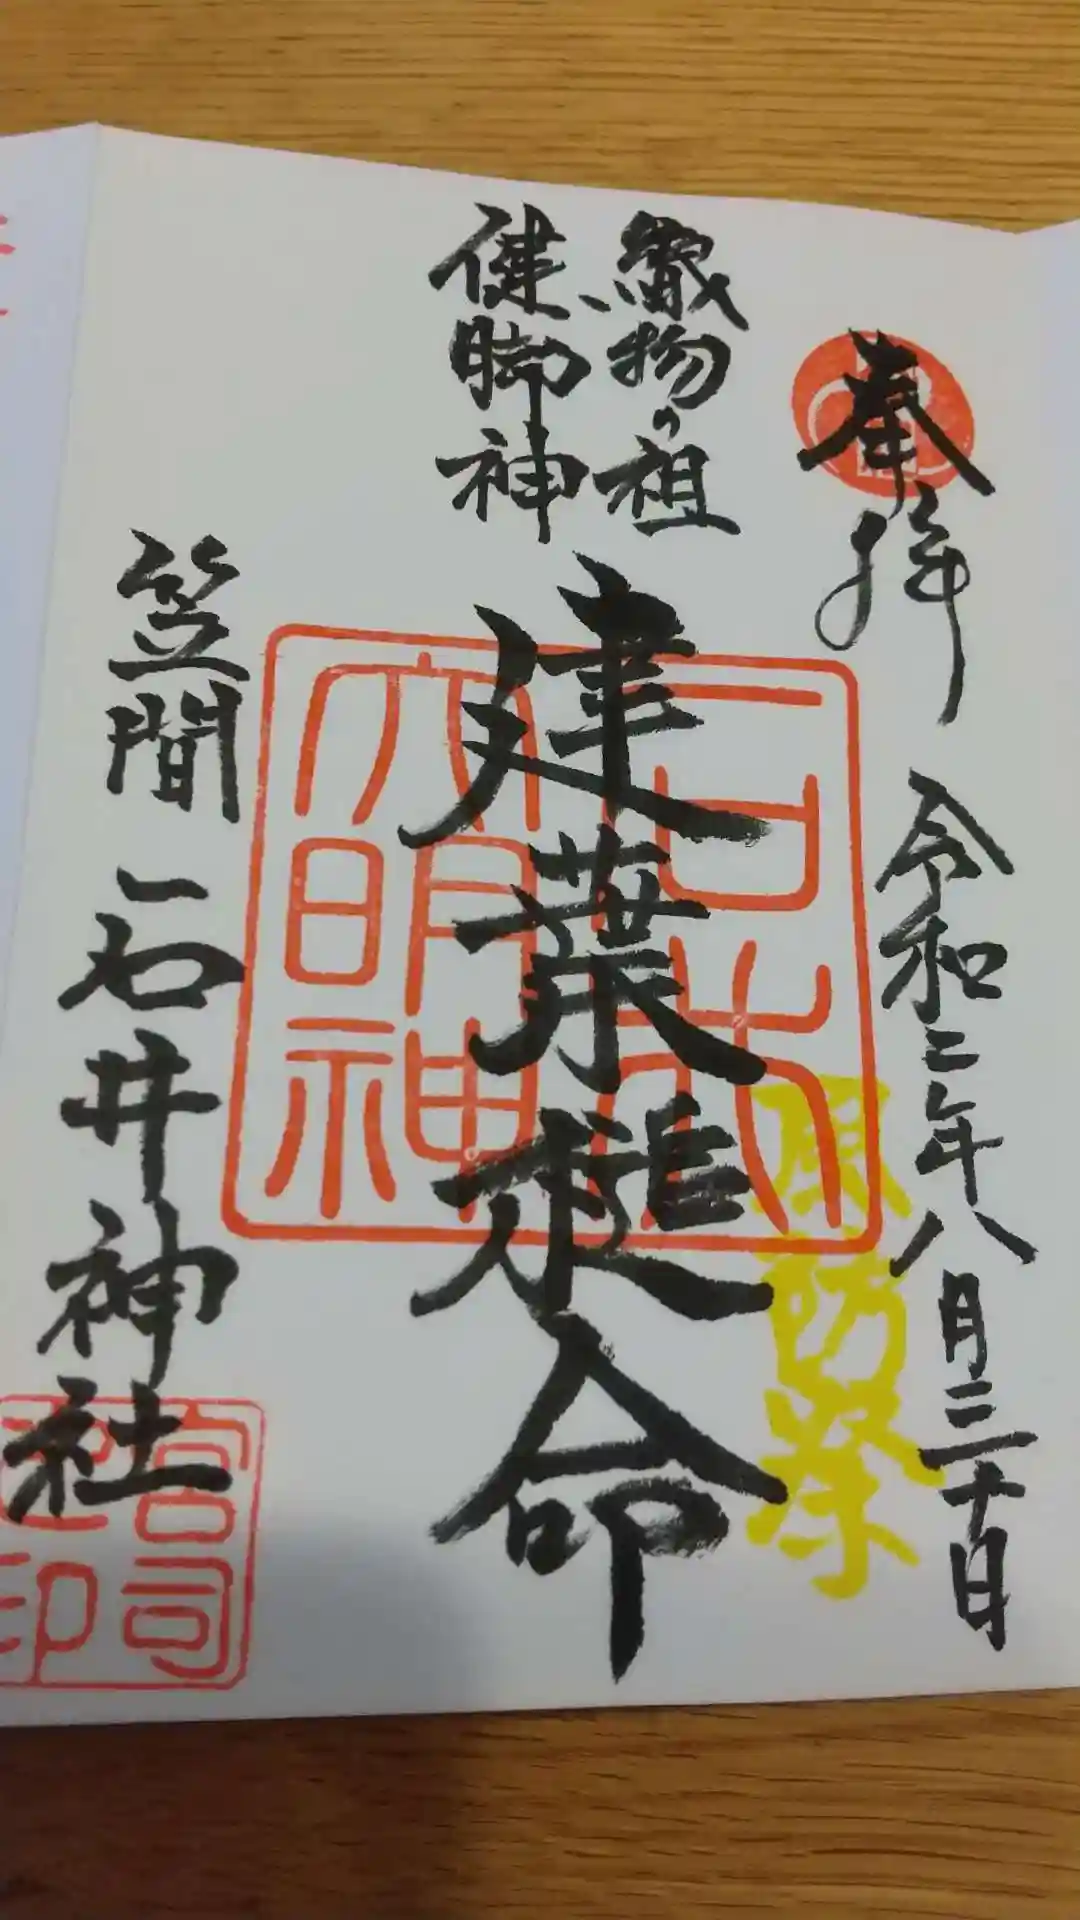 奉拝
令和二年八月三十日
風防祭
織物の祖、
健脚神
建葉槌命
大明神
笠間 石井神社
宮司
印